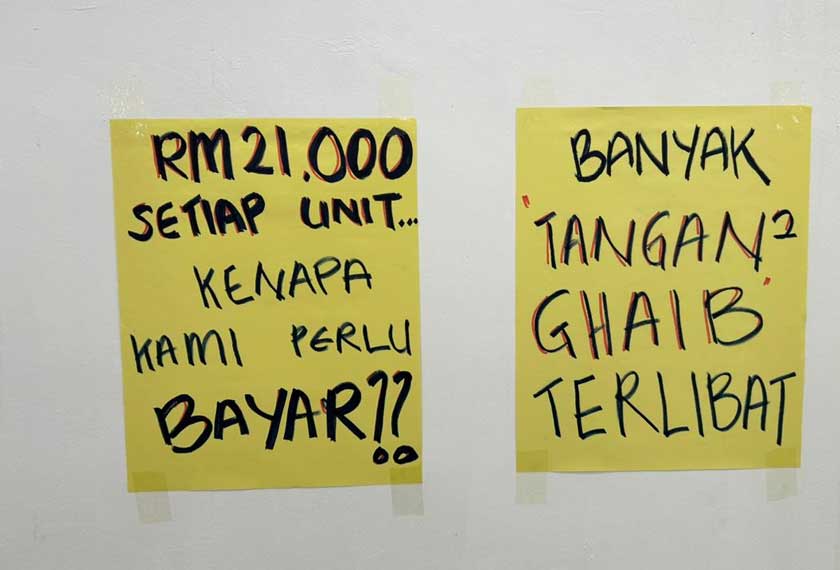 RM21.000
SETIAP UNIT...
KENAPA
KAMI PERLU
BAYAR??
BANYAK
'TANGAN2
GHAIB'
TERLIBAT